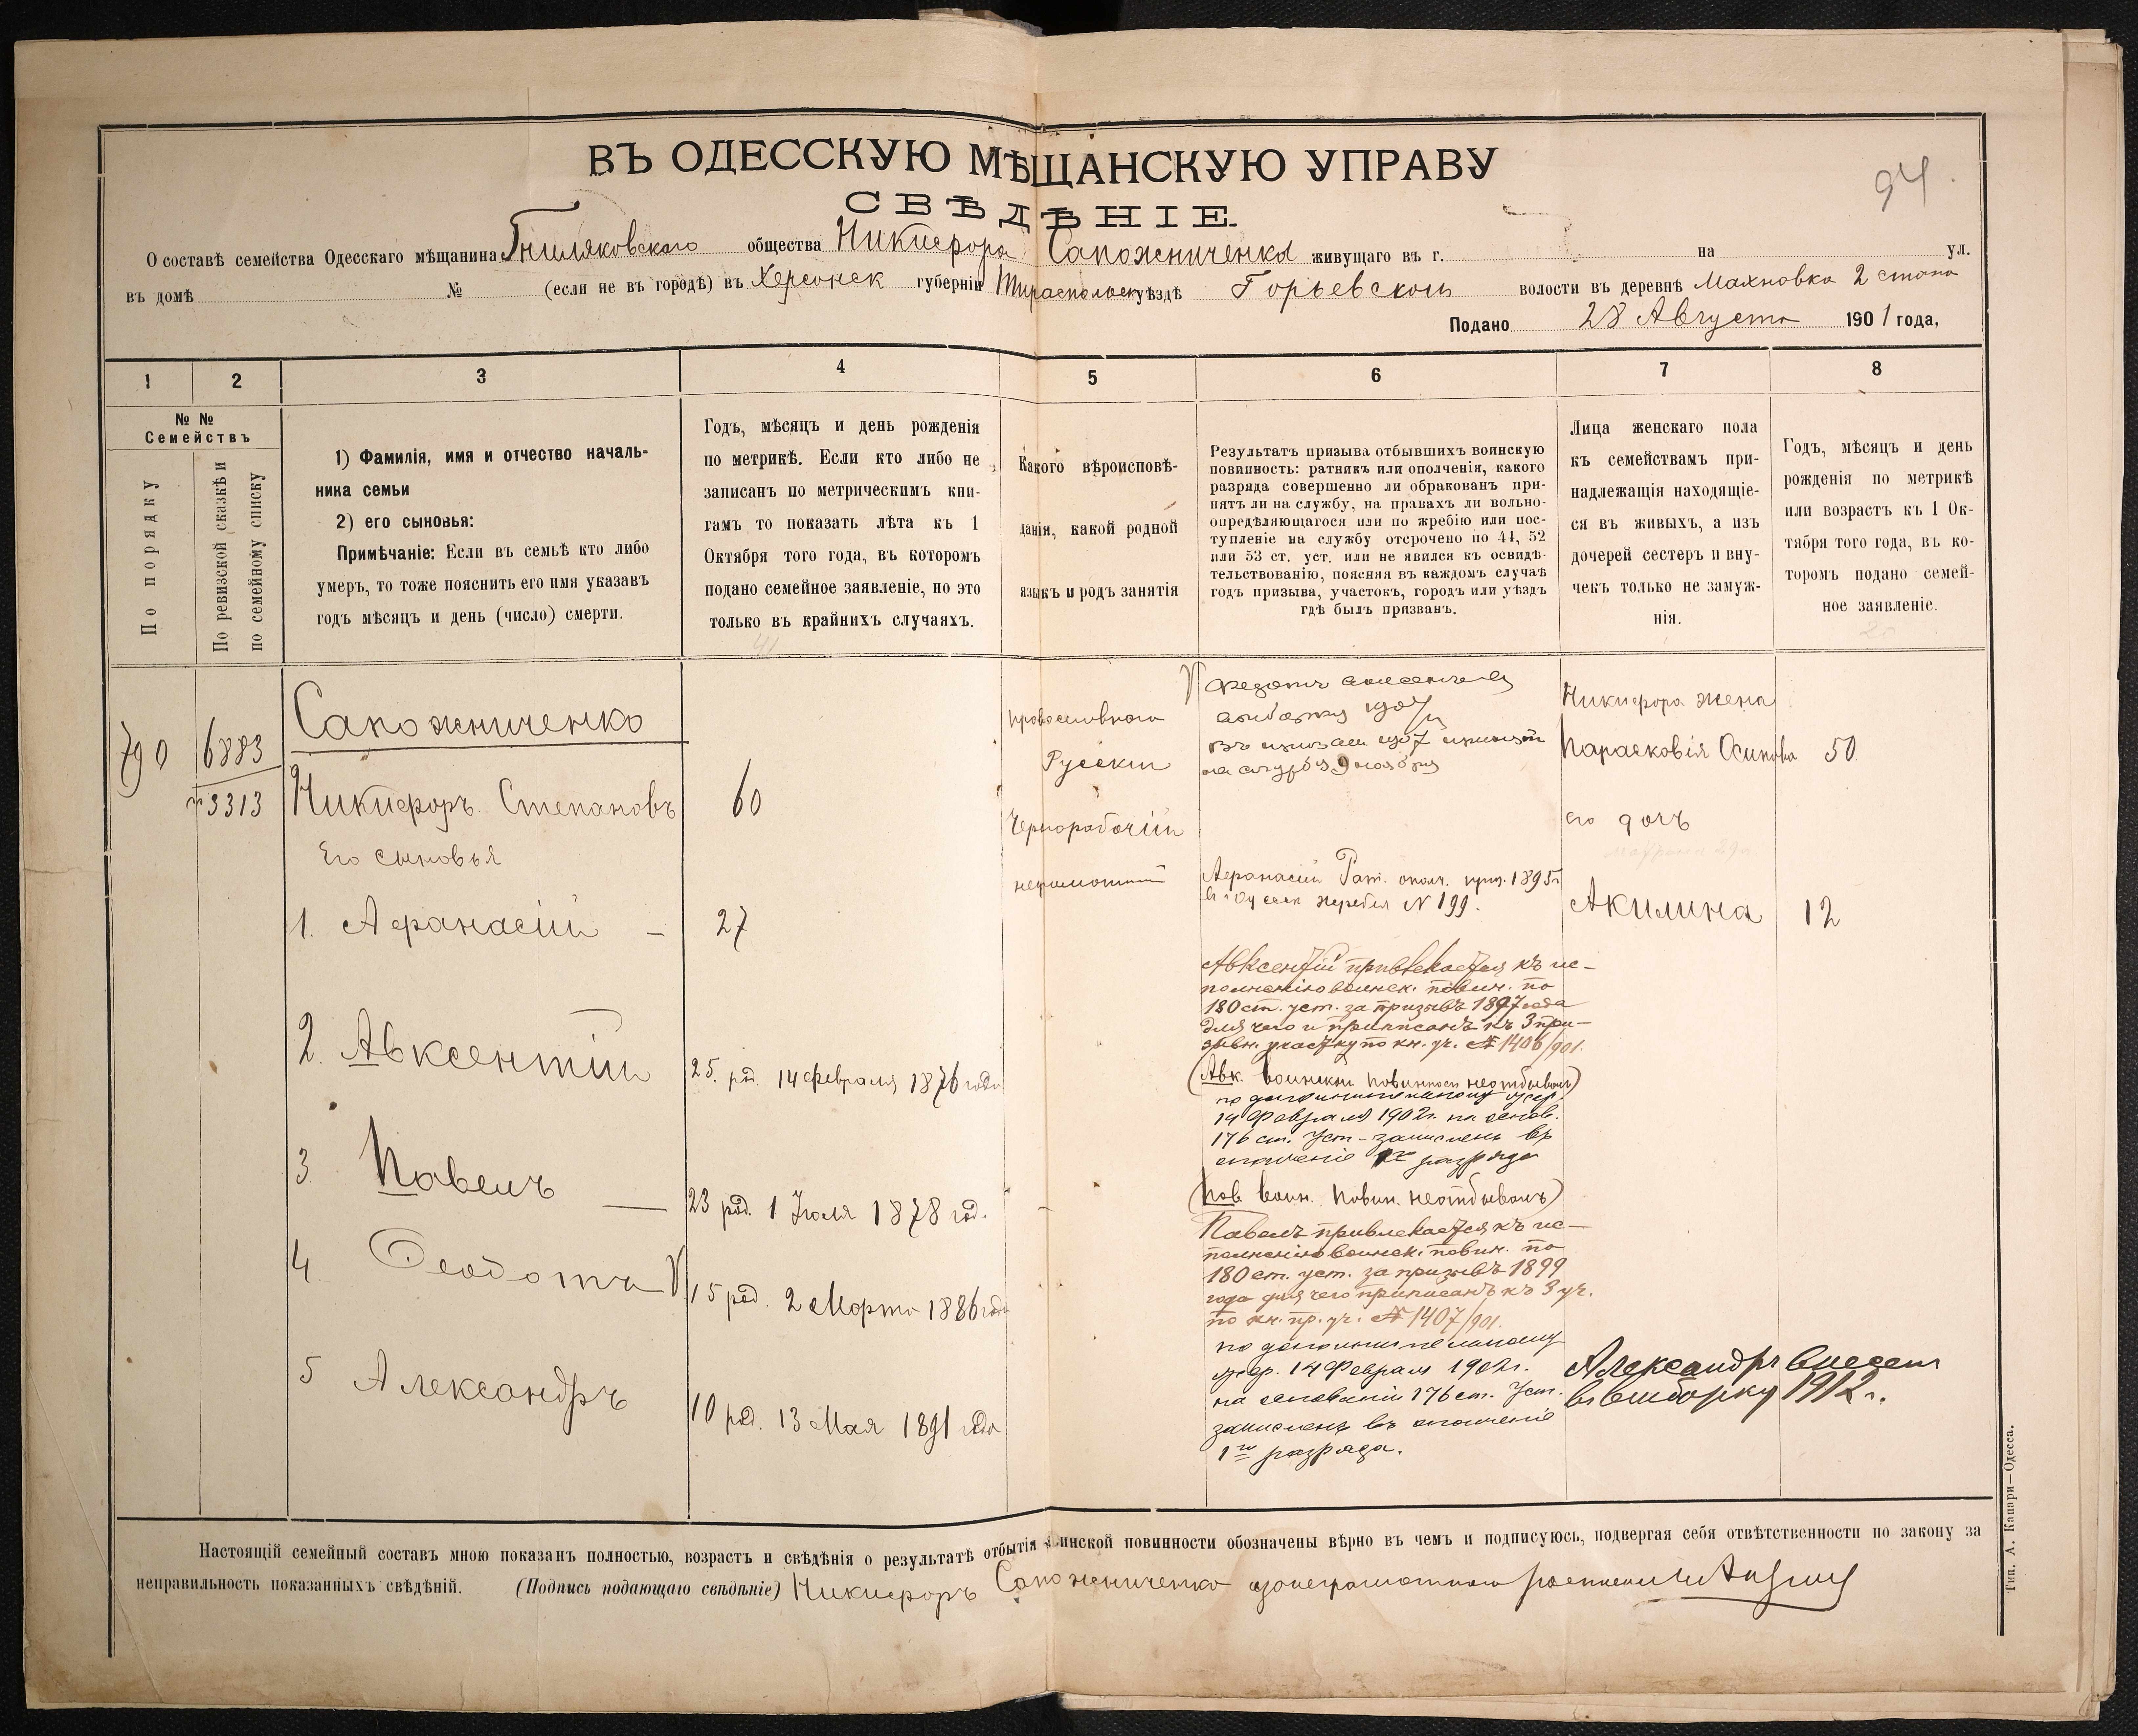 94.
ВЪ ОДЕССКУЮ МѢЩАНСКУЮ УПРАВУ
СВѢДѢНІЕ.
О составѣ семейства Одесскаго мѣщанина Гниляковскаго общества Никифора Сапожниченка живущаго въ г. на ул.
въ домѣ № (если не въ городѣ) въ Херсонск губерніи Тираспольск уѣздѣ волости въ деревнѣ Махновка 2 стана
Подано 28 Августа 1901 года,
1 2 3 4 5 6 7 8
№ №
Семействъ
По порядку
По ревизской сказкѣ и
по семейному списку
1) Фамилія, имя и отчество началь-
ника семьи
2) его сыновья:
Примѣчаніе: Если въ семьѣ кто либо
умеръ, то тоже пояснить его имя указавъ
годъ мѣсяцъ и день (число) смерти.
Годъ, мѣсяцъ и день рожденія
по метрикѣ. Если кто либо не
записанъ по метрическимъ кни-
гамъ то показать лѣта къ 1
Октября того года, въ которомъ
подано семейное заявленіе, но это
только въ крайнихъ случаяхъ.
41
Какого вѣроисповѣ-
данія, какой родной
языкъ и родъ занятія
Результатъ призыва отбывшихъ воинскую
повинность: ратникъ или ополченія, какого
разряда совершенно ли обракованъ при-
нятъ ли на службу, на правахъ ли вольно-
опредѣляющагося или по жребію или пос-
тупленіе на службу отсрочено по 44, 52
или 53 ст. уст. или не явился къ освидѣ-
тельствованію, поясняя въ каждомъ случаѣ
годъ призыва, участокъ, городъ или уѣздъ
гдѣ былъ призванъ.
Лица женскаго пола
къ семействамъ при-
надлежащія находящіе-
ся въ живыхъ, а изъ
дочерей сестеръ и вну-
чекъ только не замуж-
нія.
Годъ, мѣсяцъ и день
рожденія по метрикѣ
или возрастъ къ 1 Ок-
тября того года, въ ко-
торомъ подано семей-
ное заявленіе.
790
6883
3313
Сапожниченко
Никифоръ Степановъ 60
Его сыновья
1. Афанасій — 27
2. Авксентій
25. род. 14 февраля 1876 года
3. Павелъ —
23 род. 1 Іюля 1878 год.
4. Феодотъ
15 род. 2 Марта 1886 года
5 Александръ
10 род. 13 Мая 1891 года
православнаго
Русскій
Чернорабочій
неграмотный
Федотъ
въ 1907
на службу 9 ноября
Афанасій Рат. ополч. приз. 1895 г
жребія № 199.
Авксентій привлекается къ ис-
полненію воинск. повин. по
180 ст. уст. за призывъ 1897 года
для чего и приписанъ къ 3 при-
зывн. участку по кн. уч. № 1406/901.
(Авк. воинскій повинност неотбывалъ)
по дополнительному
14 Февраля 1902 г. на основ.
176 ст. Уст. зачисленъ въ
ополченіе разряда
(Пав. воин. повин. неотбывалъ)
Павелъ привлекается къ ис-
полненію воинск. повин. по
180 ст. уст. за призывъ 1899
года для чего приписанъ къ 3 уч.
по кн. пр. уч. № 1407/901.
по дополнительному
14 Февраля 1902 г.
на основаніи 176 ст. Уст.
зачисленъ въ ополченіе
1го разряда.
Никифора жена
Парасковія Осипова 50
его дочь
Акилина 12
Александръ внесенъ
въ выборку 1912 г.
Настоящій семейный составъ мною показанъ полностью, возрастъ и свѣдѣнія о результатѣ отбытія воинской повинности обозначены вѣрно въ чемъ и подписуюсь, подвергая себя отвѣтственности по закону за
неправильность показанныхъ свѣдѣній. (Подпись подающаго свѣдѣніе) Никифоръ Сапожниченко
Тип. А. Капари—Одесса.